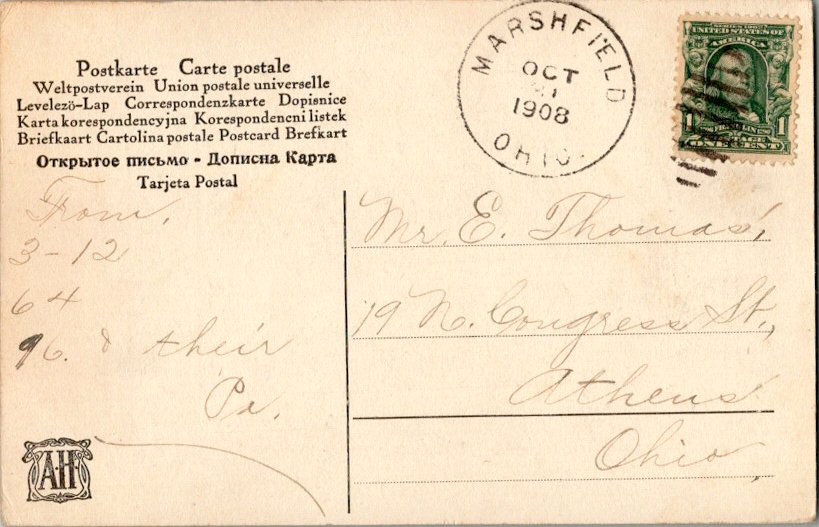 Postkarte Carte postale
Weltpostverein Union postale universelle
Levelezö-Lap Correspondenzkarte Dopisnice
Karta korespondencyjna Korespondencni listek
Briefkaart Cartolina postale Postcard Brefkart
Открытое письмо - Дописна Карта
Tarjeta Postal
MARSHFIELD
OCT
1908
OHIO.
SERIES 1902
UNITED STATES OF
AMERICA
1 FRANKLIN 1
ONE CENT
From,
3-12
64
96. & their
Pa.
Mr. E. Thomas,
19 N. Congress St.,
Athens
Ohio,
A.H